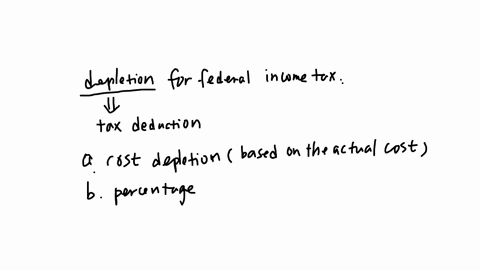 depletion for federal income tax.
⇓
tax deduction
a. cost depletion (based on the actual cost)
b. percentage